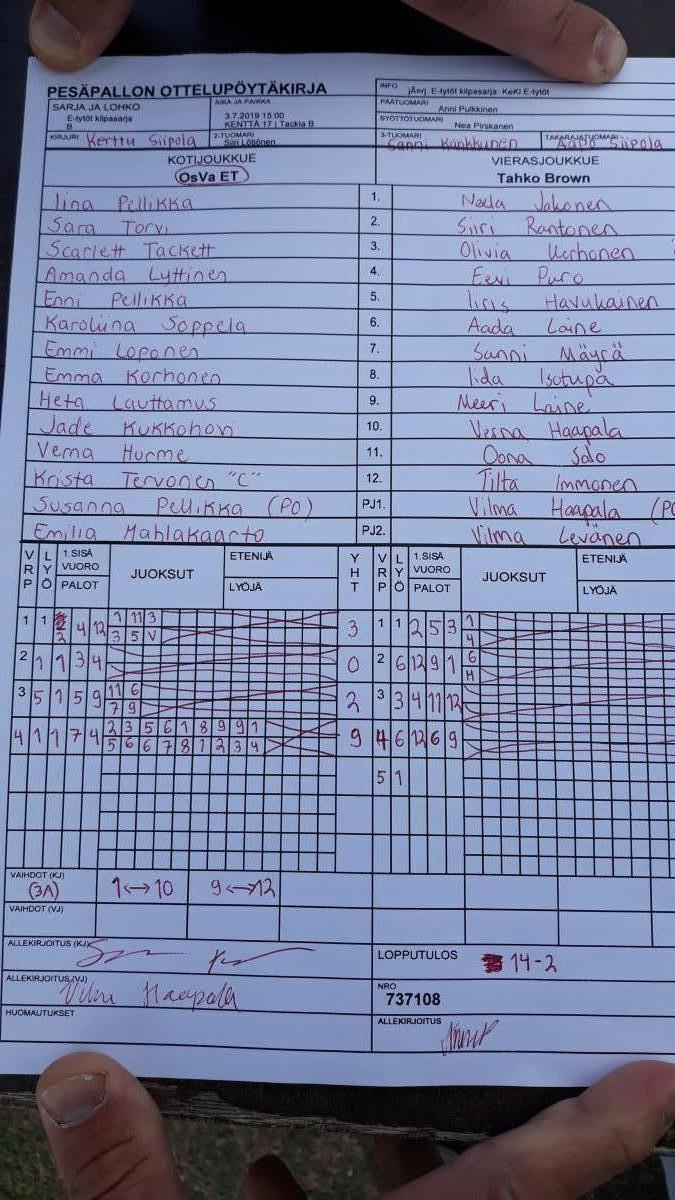 PESÄPALLON OTTELUPÖYTÄKIRJA
INFO jÄnrj. E-tytöt kilpasarja: KeKi E-tytöt
SARJA JA LOHKO E-tytöt kilpasarja B
AIKA JA PAIKKA 3.7.2019 15:00 KENTTÄ 17 | Tackla B
PÄÄTUOMARI Anni Pulkkinen
SYÖTTÖTUOMARI Nea Pirskanen
KIRJURI Kerttu Siipola 2-TUOMARI Siiri Löljönen 3-TUOMARI Sanni Konkkunen TAKARAJATUOMARI Aapo Siipola
KOTIJOUKKUE VIERASJOUKKUE
OsVa ET Tahko Brown
Iina Pellikka 1. Neela Jokonen
Sara Torvi 2. Siiri Rantonen
Scarlett Tackett 3. Olivia Korhonen
Amanda Lyttinen 4. Eevi Puro
Enni Pellikka 5. Iiris Havukainen
Karoliina Soppela 6. Aada Laine
Emmi Loponen 7. Sanni Mäyrä
Emma Korhonen 8. Iida Isotupa
Heta Lauttamus 9. Meeri Laine
Jade Kukkohovi 10. Verna Haapala
Verna Hurme 11. Oona Salo
Krista Tervonen "C" 12. Tilta Immonen
Susanna Pellikka (PO) PJ1. Vilma Haapala (PO
Emilia Mahlakaarto PJ2. Vilma Levänen
VRP LYÖ 1.SISÄ VUORO PALOT JUOKSUT ETENIJÄ LYÖJÄ YHT VRP LYÖ 1.SISÄ VUORO PALOT JUOKSUT ETENIJÄ LYÖJÄ
1 1 2 4 12 1 11 3 3 1 1 2 5 3 1
3 5 V 4
2 1 1 3 4 0 2 6 12 9 1 6
H
3 5 1 5 9 11 6 2 3 3 4 11 12
7 9
4 1 1 7 4 2 3 5 6 1 8 9 9 1 9 4 6 12 6 9
5 6 6 7 8 1 2 3 4
5 1
VAIHDOT (KJ) (3A) 1↔10 9↔12
VAIHDOT (VJ)
ALLEKIRJOITUS (KJ)
LOPPUTULOS 14-2
ALLEKIRJOITUS (VJ) Vilma Haapala
NRO 737108
HUOMAUTUKSET
ALLEKIRJOITUS